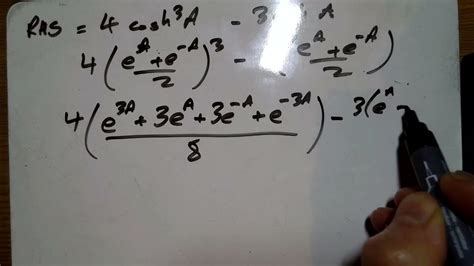 RHS = 4 cosh³A - 3 A
4 ( (e^A + e^-A) / 2 )³ - ( (e^A + e^-A) / 2 )
4 ( (e^3A + 3e^A + 3e^-A + e^-3A) / 8 ) - 3(e^A